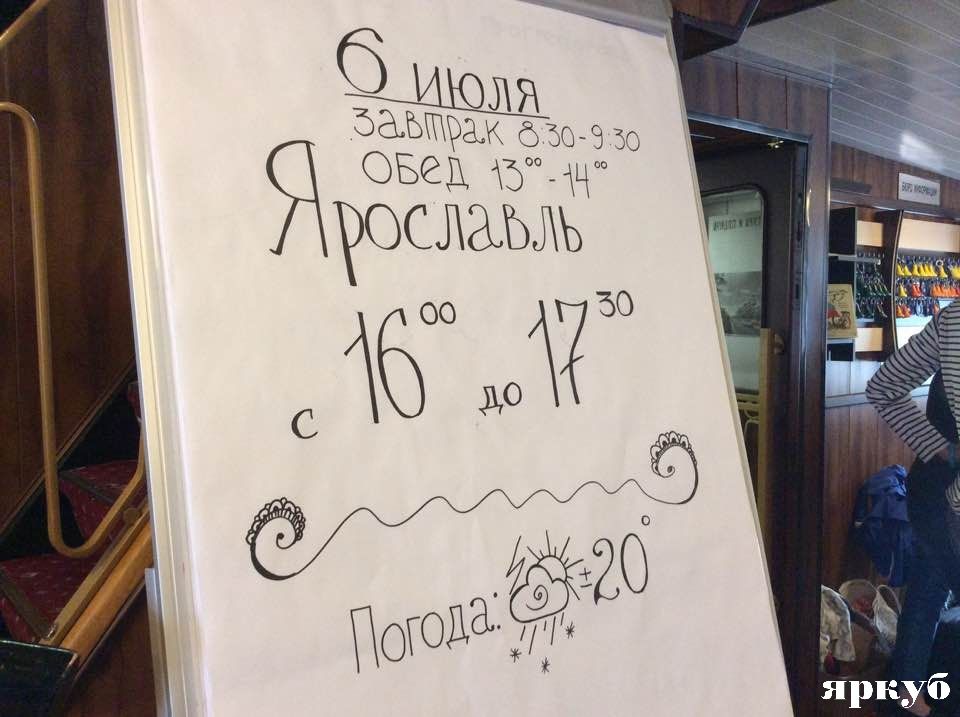 6 июля
завтрак 8:30-9:30
обед 13⁰⁰-14⁰⁰
Ярославль
с 16⁰⁰ до 17³⁰
Погода: ±20°
БЮРО ИНФОРМАЦИИ
яркуб